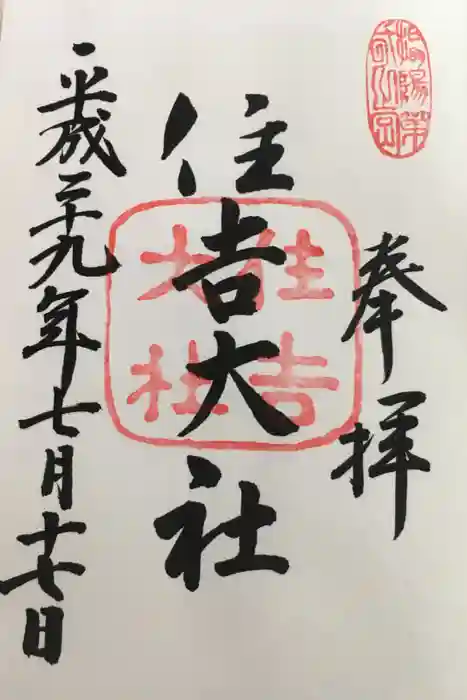 奉拝
住吉大社
住吉
大社
平成二十九年七月十七日